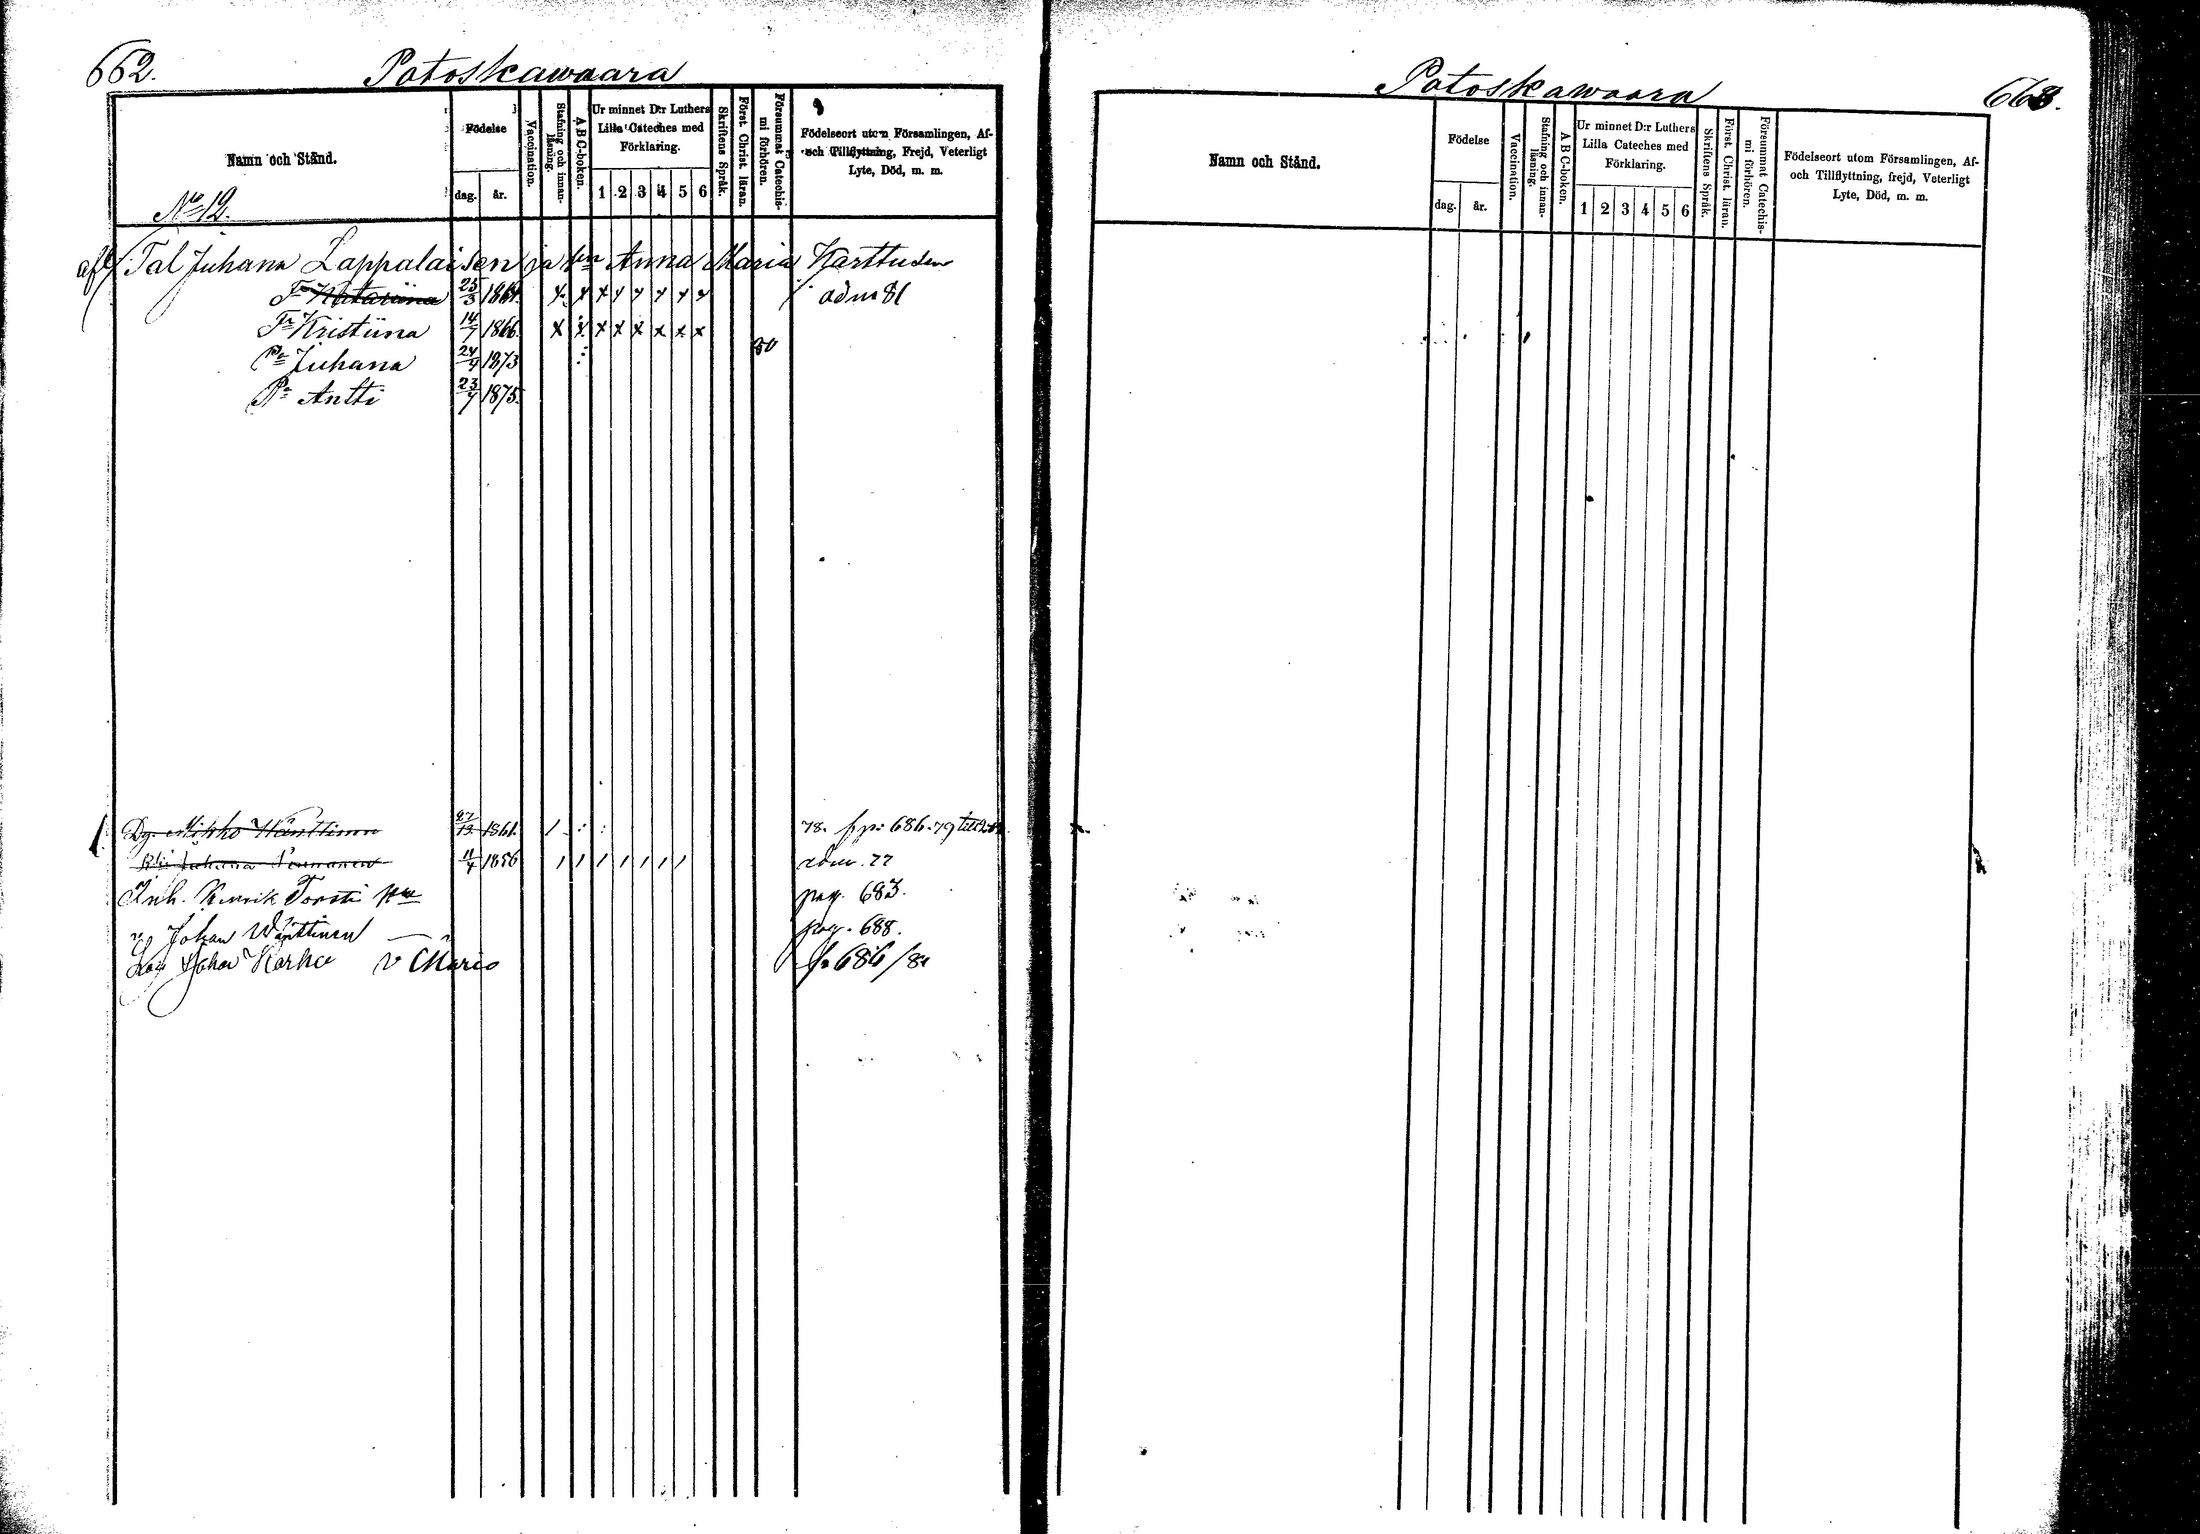 662. Potoskawaara
Namn och Stånd.
Födelse
dag. år.
Vaccination.
Stafning och innan-läsning.
A B C-boken.
Ur minnet D:r Luthers
Lilla Cateches med
Förklaring.
1 2 3 4 5 6
Skriftens Språk.
Först. Christ. läran.
Försummat Catechis-mi förhören.
Födelseort utom Församlingen, Af-
och Tillflyttning, Frejd, Veterligt
Lyte, Död, m. m.
No 12.
Tal Juhana Lappalaisen ja Anna Maria Karttusen
Katariina 25/3 1864. x x x x x x x x adm 81
Kristiina 14/7 1866. x x x x x x x x
Juhana 24/4 1873 80
Antti 23/7 1875.
Mikko 1861. 78. 686. 79
Juhana Pennanen 11/4 1856 adm. 77
Inh. Henrik Torsti pag. 683.
Johan Wänttinen pag. 688.
Johan Karhu 686/81
Potoskawaara 663.
Namn och Stånd.
Födelse
dag. år.
Vaccination.
Stafning och innan-läsning.
A B C-boken.
Ur minnet D:r Luthers
Lilla Cateches med
Förklaring.
1 2 3 4 5 6
Skriftens Språk.
Först. Christ. läran.
Försummat Catechis-mi förhören.
Födelseort utom Församlingen, Af-
och Tillflyttning, frejd, Veterligt
Lyte, Död, m. m.